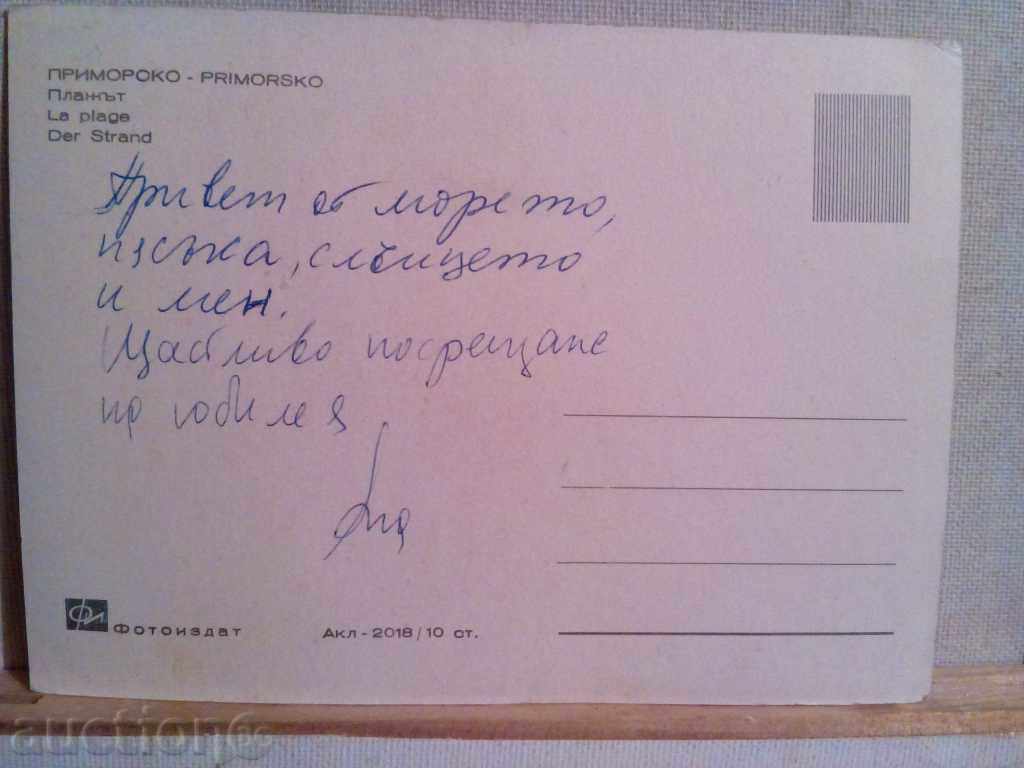 ПРИМОРСКО - PRIMORSKO
Плажът
La plage
Der Strand
Привет от морето,
пясъка, слънцето
и мен.
Щастливо посрещане
на юбилея
Фотоиздат
Акл-2018/10 ст.
auction69